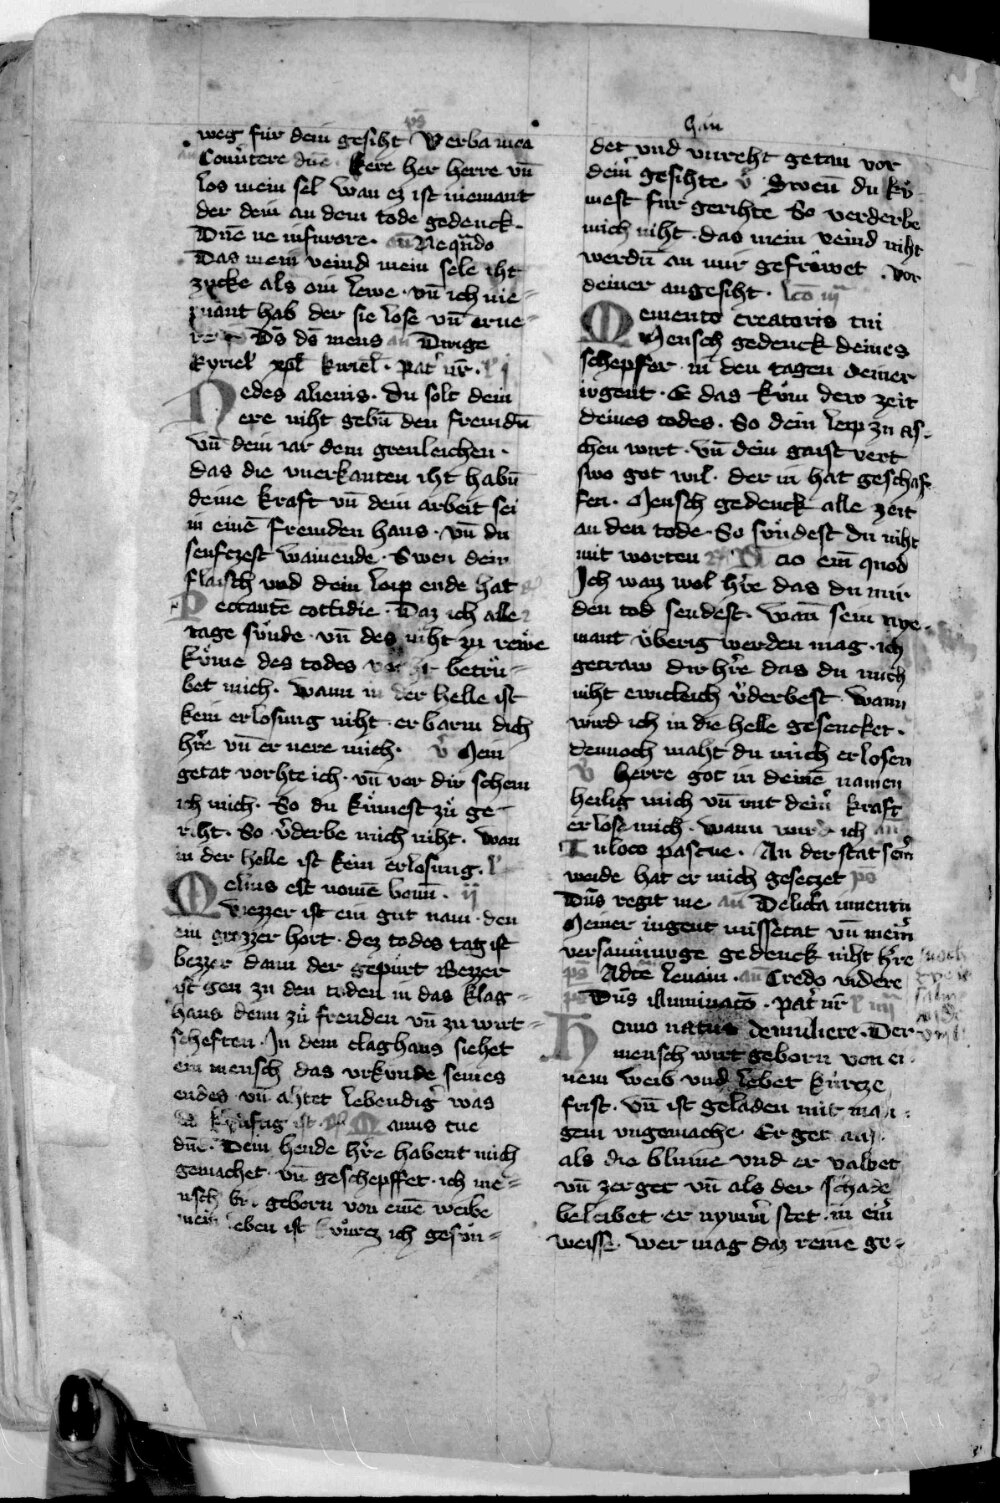 weg fur dem gesiht ps̄ Verba mea
Couůtere dn̄e. kere her herre vn̄
los mein sel wan ez ist niemant
der dein an dem tode gedenck.
Dn̄e ne infurore. an̄ Neqn̄do
Das mein veind mein sele iht
zucke als ain lewe. vn̄ ich nie=
mant hab der sie lose vn̄ erne=
re Ds̄ ds̄ meus an̄ Dirige
kyriel xp̄l kiriel. pat̾ nr̄. l̾ i
Nedes alienis. du solt dein
ere niht gebn̄ den fremdn̄
vn̄ dein iar dem greuleichen.
das die vnerkanten iht habn̄
deine kraft vn̄ dein arbeit sei
in einē fremden haus. vn̄ du
seufczest wainende. Swen dein
flaisch vnd dein leip ende hat
Peccantē cottidie. Daz ich alle
tage sůnde. vn̄ des niht zu rewe
kůme des todes vorht betrů=
bet mich. wann in der helle ist
kein erlosung niht. erbarm dich
hr̄e vn̄ er nere mich. v̾ Mein
getat vorhte ich. vn̄ vor dir schem
ich mich. So du kůmest zů ge=
riht. So v̾derbe mich niht. wan
in der helle ist kein erlosung. l̾
Melius est nomē bonū. ii
Bezzer ist ein gut nam. den
ein grozzer hort. dez todes tag ist
bezzer dann der gepurt Bezzer
ist gen zu den toden in das klag=
haus denn zů freuden vn̄ zu wirt=
scheften. In dem claghaus siehet
ein mensch das vrkunde seines
endes vn̄ ahtet lebendig̾ was
kunftig ist. Manus tue
dn̄e. Dein hende hr̄e habent mich
gemachet. vn̄ geschepffet. ich me=
nsch bin geborn von einē weibe
mein leben ist kůrcz ich gesůn=
han
det vnd vnreht getan vor
deim̾ gesihte v̾ Swenn̄ du ků
mest fur gerihte So verderbe
mich niht. das mein veind niht
werdn̄ an mir gefrůwet. vor
deiner angesiht. lcō iii
Memento creatoris tui
Mensch gedenck deines
schepfer in den tagen deiner
iugent. E das kům dew zeit
deines todes. So dein leip zu as=
chen wirt. vn̄ dein gaist vert
swo got wil. der in hat geschaf
fen. Mensch gedenck alle zeit
an den tode. So sůndest du niht
mit worten Scio eni̅ quod
Ich waiz wol hr̄e das du mir
den tod sendest. wan̄ sein nye=
mant ůberig werden mag. ich
getraw dir hr̄e das du mich
niht ewicleich v̾derbest wann
wird ich in die helle gesencket.
dennoch maht du mich erlosen
v̾ herre got in deinē namen
heilig mich vn̄ mit dein̾ kraft
erlose mich. wann wird ich an̄
In loco pascue. An der stat sein̾
weide hat er mich gesetzet ps̄
Dn̄s regit me an̄ Delicta iuuentu
Meiner iugent missetat vn̄ mein̾
versaumnuzze gedenck niht hr̄e
ps̄ Ad te leuaui. an̄ Credo videre
ps̄ Dn̄s illuminacō. pat̾ nr̄ l̾ iiii
Homo natus de muliere. Der
mensch wirt geborn von ei
nem weib vnd lebet kurcze
frist. vn̄ ist geladen mit man=
gem vngemache Er get auf
als die blume vnd er valwet
vn̄ zerget vn̄ als der schade
beleibet er nymm̾ stet. in ein̾
weisse. wer mag daz reine ge=